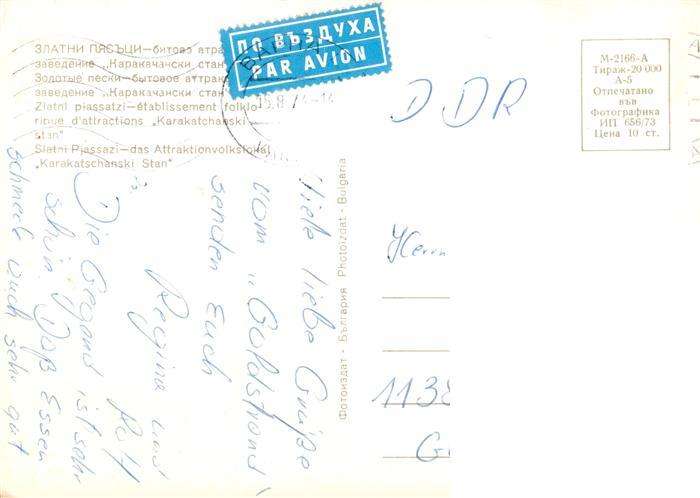 ЗЛАТНИ ПЯСЪЦИ—битова атра
заведение „Каракачански стан
Золотые пески—бытовое аттрак
заведение „Каракачански стан
Zlatni piassatzi—établissement folklo
rique d'attractions „Karakatchanski
stan"
Slatni Pjassazi—das Attraktionvolkslokal
„Karakatschanski Stan"
ПО ВЪЗДУХА
PAR AVION
ВАРНА
15.8.74-14
М-2166-А
Тираж-20 000
А-5
Отпечатано
във
Фотографика
ИП 656/73
Цена 10 ст.
Фотоиздат - България Photoizdat - Bulgaria
Viele liebe Grüße
vom „Goldstrand"
senden Euch
Regina und
Rolf
Die Gegend ist sehr
schön. Das Essen
schmeckt auch sehr gut
DDR
Herrn
1138